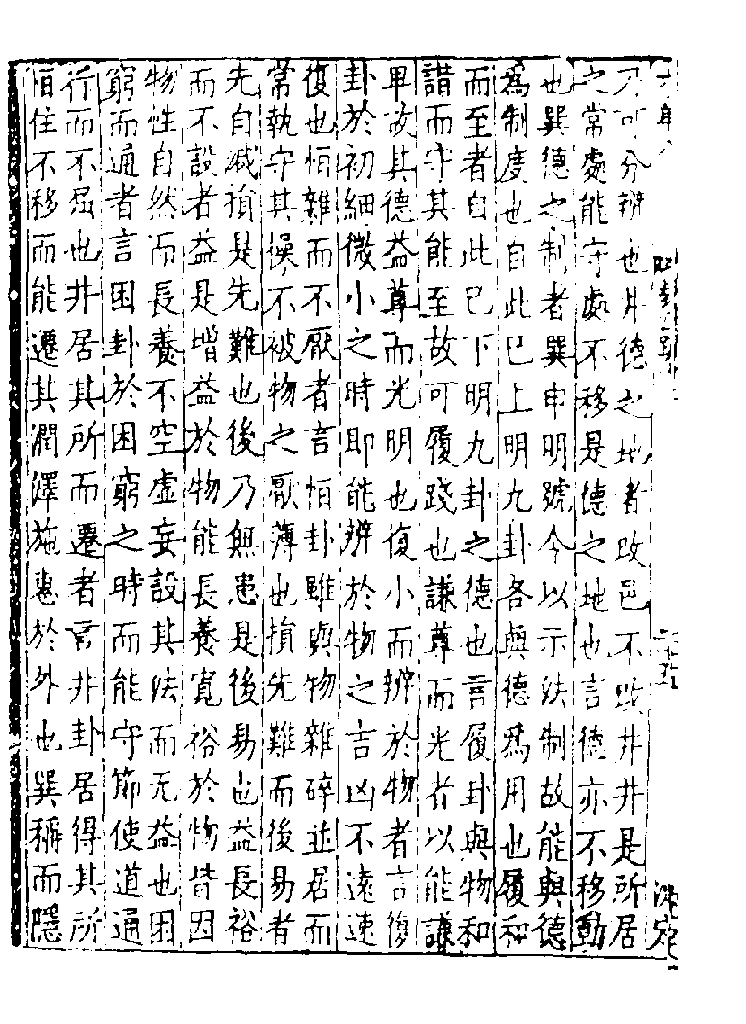 乃可分辨也井德之地者改邑不改井井是所居
之常處能守處不移是德之地也言德亦不移動
也巽德之制者巽申明號令以示法制故能與德
爲制度也自此已上明九卦各與德爲用也履和
而至者自此已下明九卦之德也言履卦與物和
諧而守其能至故可履踐也謙尊而光者以能謙
卑故其德益尊而光明也復小而辨於物者言復
卦於初細微小之時即能辨於物之吉凶不遠速
復也恒雜而不厭者言恒卦雖與物雜碎並居而
常執守其操不被物之厭薄也損先難而後易者
先自減損是先難也後乃無患是後易也益長裕
而不設者益是增益於物能長養寬裕於物皆因
物性自然而長養不空虛妄設其法而无益也困
窮而通者言困卦於困窮之時而能守節使道通
行而不屈也井居其所而遷者言井卦居得其所
恒住不移而能遷其潤澤施惠於外也巽稱而隱